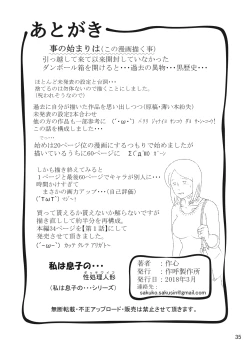 あとがき
事の始まりは(この漫画描く事)
引っ越して来て以来開封していなかった
ダンボール箱を開けると・・・過去の異物・・・黒歴史・・・
ほとんど未発表の設定と台詞・・・
捨てるのは勿体ないので描くことにしました。
(呪われそうなので)
過去に自分が描いた作品を思い出しつつ(原稿・薄い本紛失)
未発表の設定2本合わせ
他の方の作品も一部参考に
始めは20ページ位の漫画にするつもりで始めましたが
描いているうちに60ページに
しかも描き終えてみると
1ページと最後60ページでキャラが別人に・・・
時間かけすぎて
まさかの画力アップ・・・(自己評価)
(TωT)のですが・・・
買って貰えるか貰えないか解らないですが
再販時に加筆する余力も納得。
本編34ページを【第1話】にして
発売させて頂きました。
(´-ω-)
私は息子の・・・
性処理人形
(私は息子の・・・シリーズ)
著者 :作心
発行 :作呼製作所
発行日:2018年3月
連絡先:
sakuko.sakusin@gmail.com
無断転載・不正アップロード・販売は禁止させて頂きます。
35